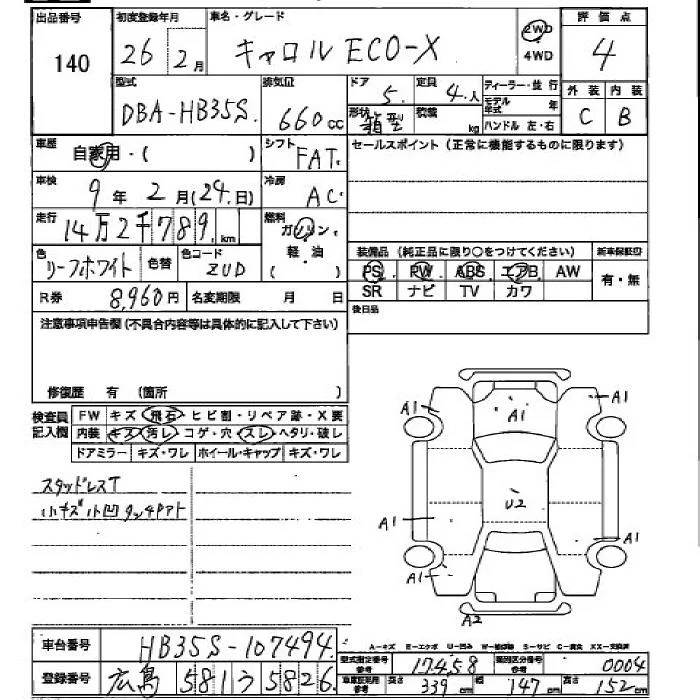 出品番号 初度登録年月 車名・グレード 評価点
140 26 2月 キャロル ECO-X 2WD 4WD 4
型式 排気量 ドア 定員 ディーラー・並行 外装 内装
DBA-HB35S. 660cc 5. 4.人 モデル年式 年 C B
形状 箱型 積載 kg ハンドル 左・右
車歴 自家用・( ) シフト FAT. セールスポイント (正常に機能するものに限ります)
車検 9年 2月(24.日) 冷房 AC.
走行 14万2千789.km 燃料 ガソリン・軽・油 ( )
色 リーフホワイト 色替 色コード ZUD
装備品 (純正品に限り○をつけてください) 新車保証書
PS. PW. ABS エアB AW 有・無
R券 8,960円 名変期限 月 日 SR ナビ TV カワ
注意事項申告欄(不具合内容等は具体的に記入して下さい) 後日品
修復歴 有 (箇所 )
検査員記入欄 FW キズ・飛石・ヒビ割・リペア跡・X要
内装 キズ・汚レ・コゲ・穴・スレ・ヘタリ・破レ
ドアミラー キズ・ワレ ホイール・キャップ キズ・ワレ
スタッドレスT
小キズ小凹タッチPアト
A1 A1 A1
U2
A1 A1
A1
A2
車台番号 HB35S-107494.
A-キズ E-エクボ U-凹み W-補修跡 S-サビ C-腐食 XX-交換済
登録番号 広島 581う5826
型式指定番号 参考 17458 類別区分番号 参考 0004
車庫証明用 参考 長さ 339cm 幅 147cm 高さ 152cm